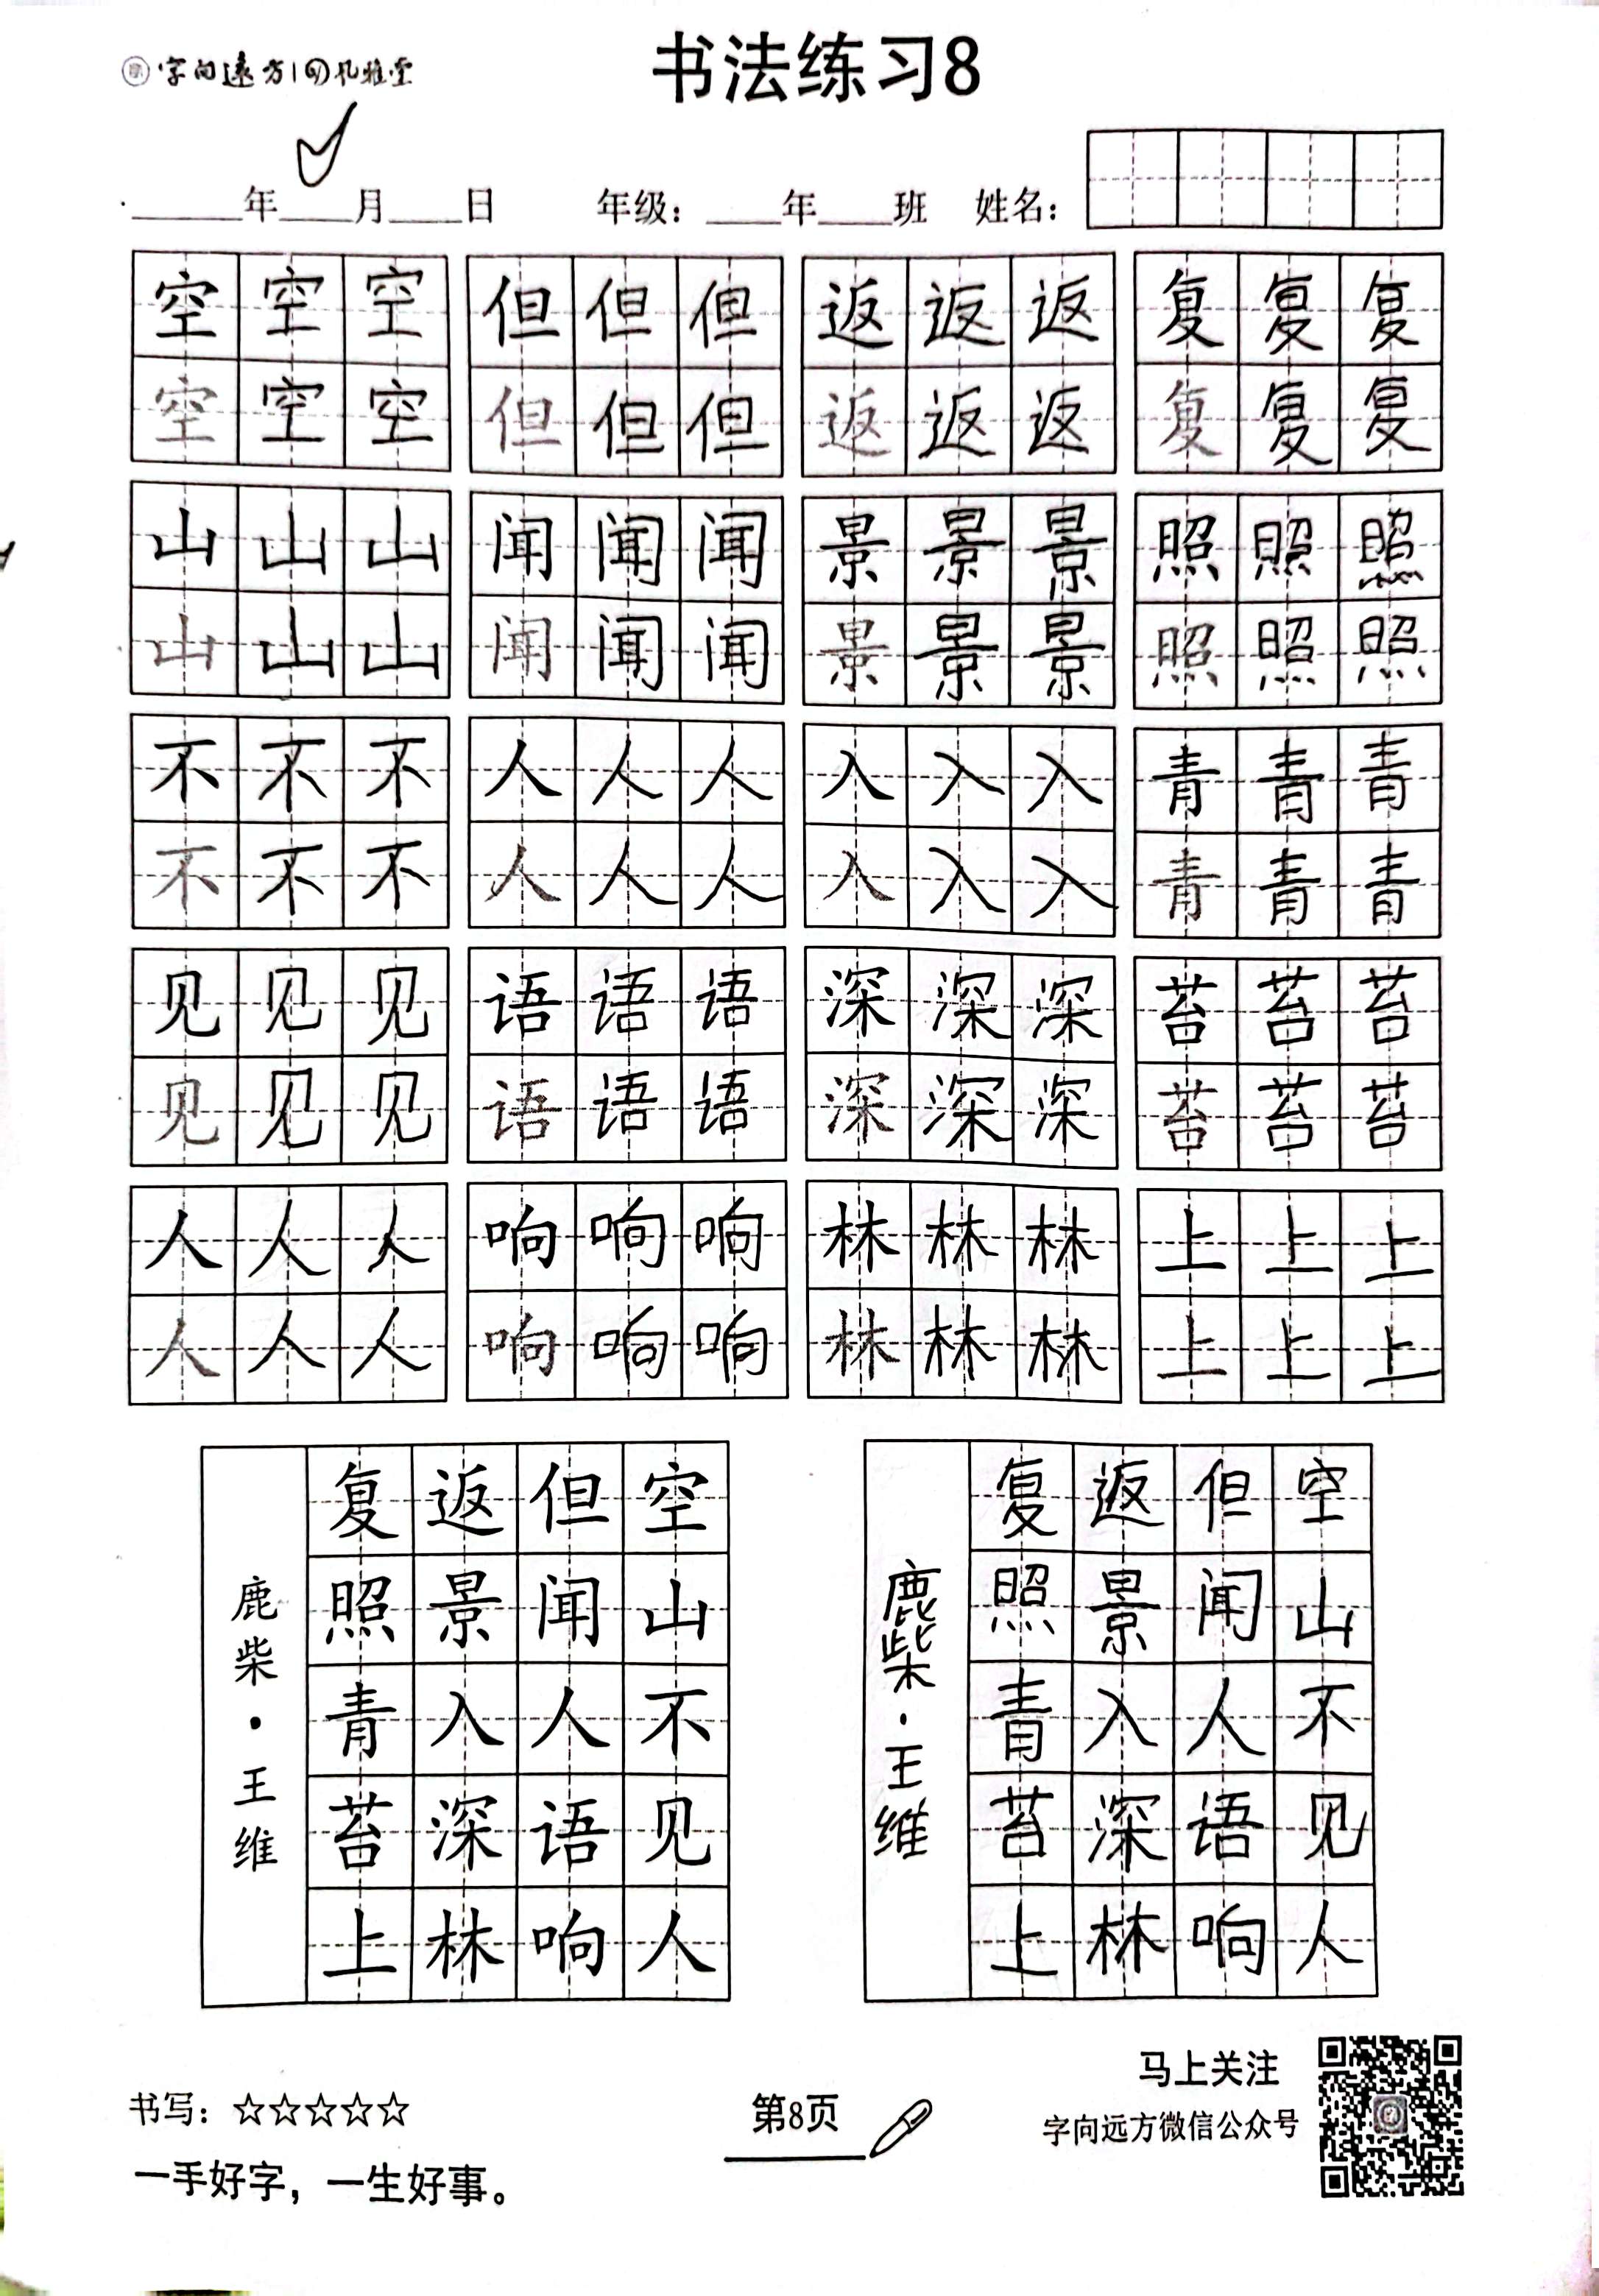 字向远方|回孔雅堂
书法练习8
年 月 日 年级: 年 班 姓名:
空空空 但但但 返返返 复复复
空空空 但但但 返返返 复复复
山山山 闻闻闻 景景景 照照照
山山山 闻闻闻 景景景 照照照
不不不 人人人 入入入 青青青
不不不 人人人 入入入 青青青
见见见 语语语 深深深 苔苔苔
见见见 语语语 深深深 苔苔苔
人人人 响响响 林林林 上上上
人人人 响响响 林林林 上上上
空山不见人
但闻人语响
返景入深林
复照青苔上
鹿柴·王维
空山不见人
但闻人语响
返景入深林
复照青苔上
鹿柴·王维
书写:☆☆☆☆☆
一手好字,一生好事。
第8页
马上关注
字向远方微信公众号